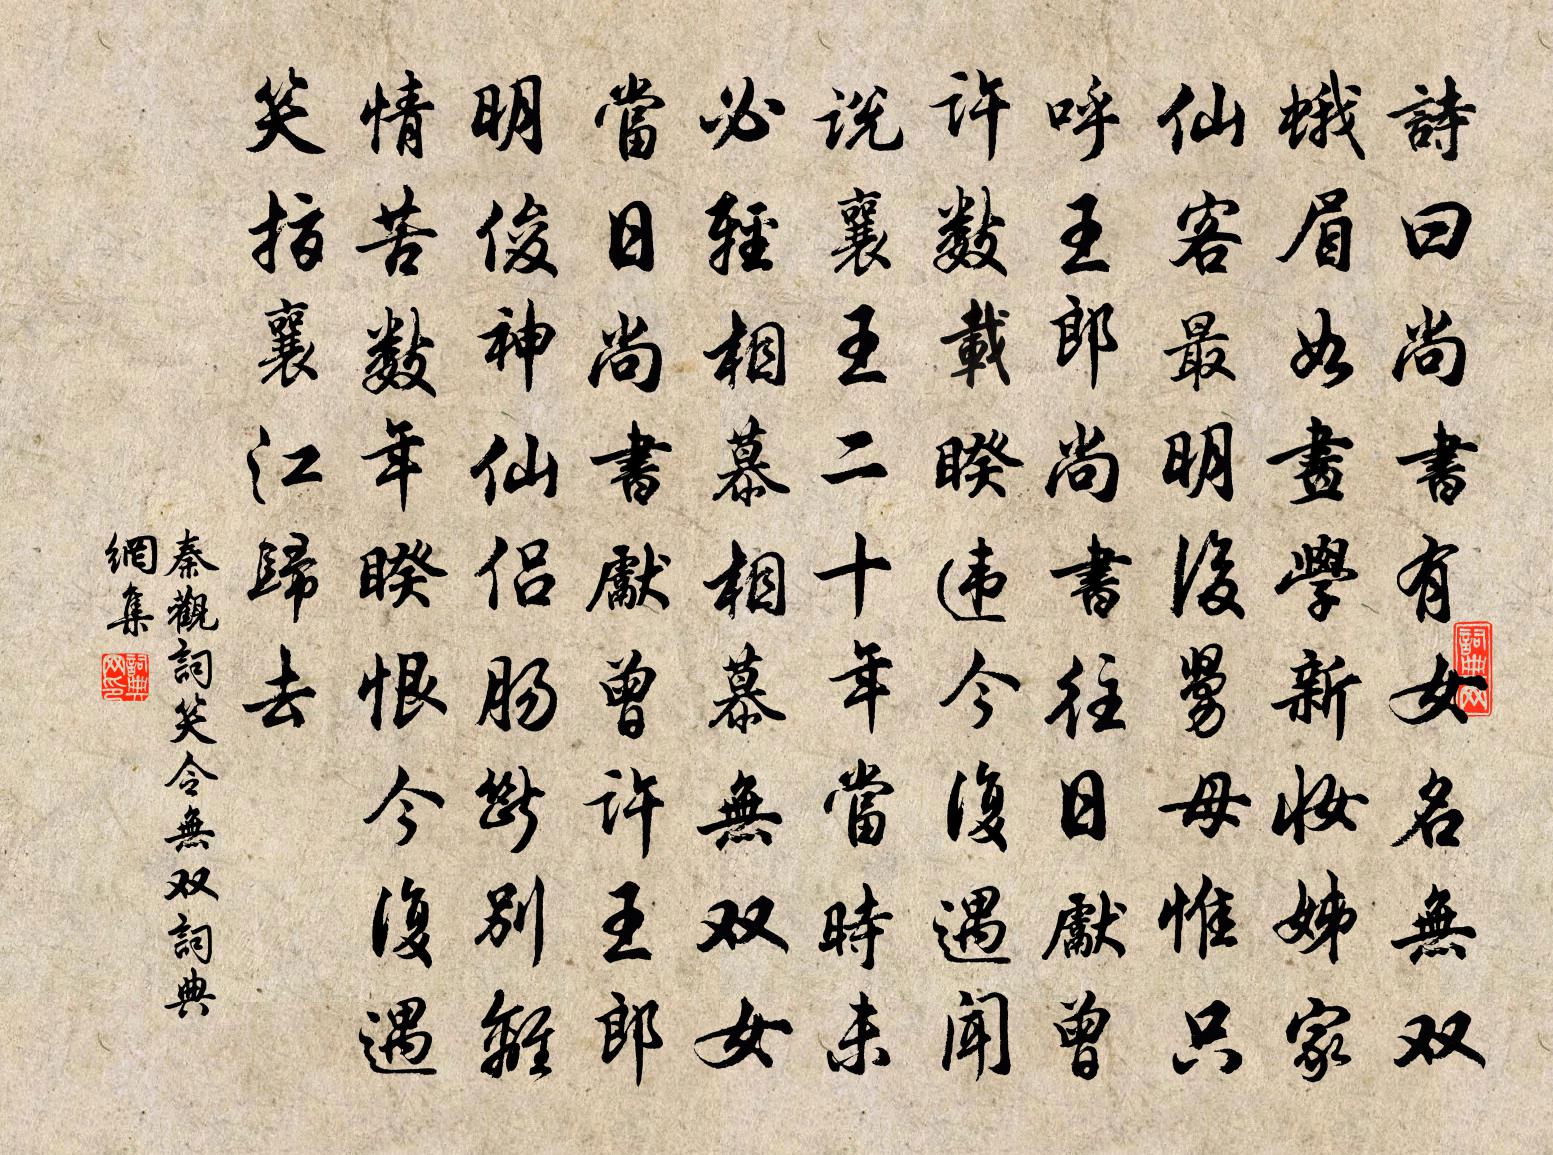 詩曰尚書有女名無双
蛾眉如畫學新妝姊家
仙客最明俊舅母惟只
呼王郎尚書往日獻曾
許數載睽违今復遇闻
说襄王二十年當時未
必輕相慕相慕無双女
當日尚書獻曾许王郎
明俊神仙侣肠斷别離
情苦數年睽恨今復遇
笑指襄江歸去
秦觀詞笑令無双詞典
網集
詞典网
詞典网印